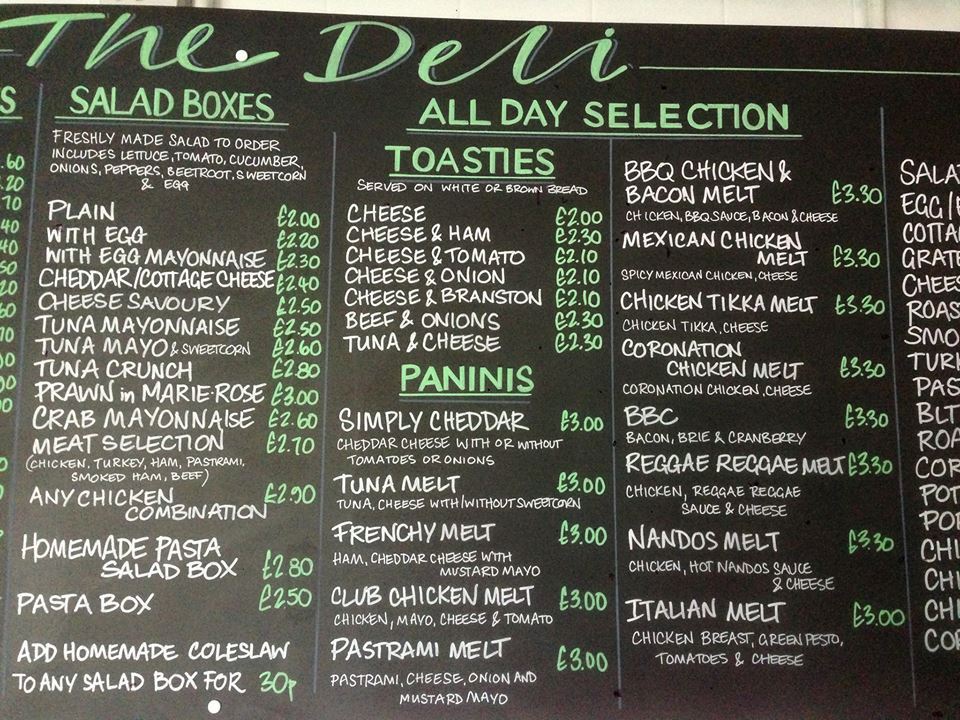 The Deli
S
.60
.20
.70
.40
.40
.50
.20
.60
.70
SALAD BOXES
FRESHLY MADE SALAD TO ORDER
INCLUDES LETTUCE, TOMATO, CUCUMBER,
ONIONS, PEPPERS, BEETROOT, SWEETCORN
& EGG
PLAIN £2.00
WITH EGG £2.20
WITH EGG MAYONNAISE £2.30
CHEDDAR/COTTAGE CHEESE £2.40
CHEESE SAVOURY £2.50
TUNA MAYONNAISE £2.50
TUNA MAYO & SWEETCORN £2.60
TUNA CRUNCH £2.80
PRAWN in MARIE·ROSE £3.00
CRAB MAYONNAISE £2.60
MEAT SELECTION £2.70
(CHICKEN, TURKEY, HAM, PASTRAMI,
SMOKED HAM, BEEF)
ANY CHICKEN £2.90
COMBINATION
HOMEMADE PASTA
SALAD BOX £2.80
PASTA BOX £2.50
ADD HOMEMADE COLESLAW
TO ANY SALAD BOX FOR 30p
ALL DAY SELECTION
TOASTIES
SERVED ON WHITE OR BROWN BREAD
CHEESE £2.00
CHEESE & HAM £2.30
CHEESE & TOMATO £2.10
CHEESE & ONION £2.10
CHEESE & BRANSTON £2.10
BEEF & ONIONS £2.30
TUNA & CHEESE £2.30
PANINIS
SIMPLY CHEDDAR £3.00
CHEDDAR CHEESE WITH OR WITHOUT
TOMATOES OR ONIONS
TUNA MELT £3.00
TUNA, CHEESE WITH/WITHOUT SWEETCORN
FRENCHY MELT £3.00
HAM, CHEDDAR CHEESE WITH
MUSTARD MAYO
CLUB CHICKEN MELT £3.00
CHICKEN, MAYO, CHEESE & TOMATO
PASTRAMI MELT £3.00
PASTRAMI, CHEESE, ONION AND
MUSTARD MAYO
BBQ CHICKEN &
BACON MELT £3.30
CHICKEN, BBQ SAUCE, BACON & CHEESE
MEXICAN CHICKEN
MELT £3.30
SPICY MEXICAN CHICKEN, CHEESE
CHICKEN TIKKA MELT £3.30
CHICKEN TIKKA, CHEESE
CORONATION
CHICKEN MELT £3.30
CORONATION CHICKEN, CHEESE
BBC £3.30
BACON, BRIE & CRANBERRY
REGGAE REGGAE MELT £3.30
CHICKEN, REGGAE REGGAE
SAUCE & CHEESE
NANDOS MELT £3.30
CHICKEN, HOT NANDOS SAUCE
& CHEESE
ITALIAN MELT £3.00
CHICKEN BREAST, GREEN PESTO,
TOMATOES & CHEESE
SALA
EGG/
COTTA
GRATE
CHEES
ROAS
SMO
TURK
PAS
BLT
ROA
COR
POT
POR
CHI
CHI
CHI
COR